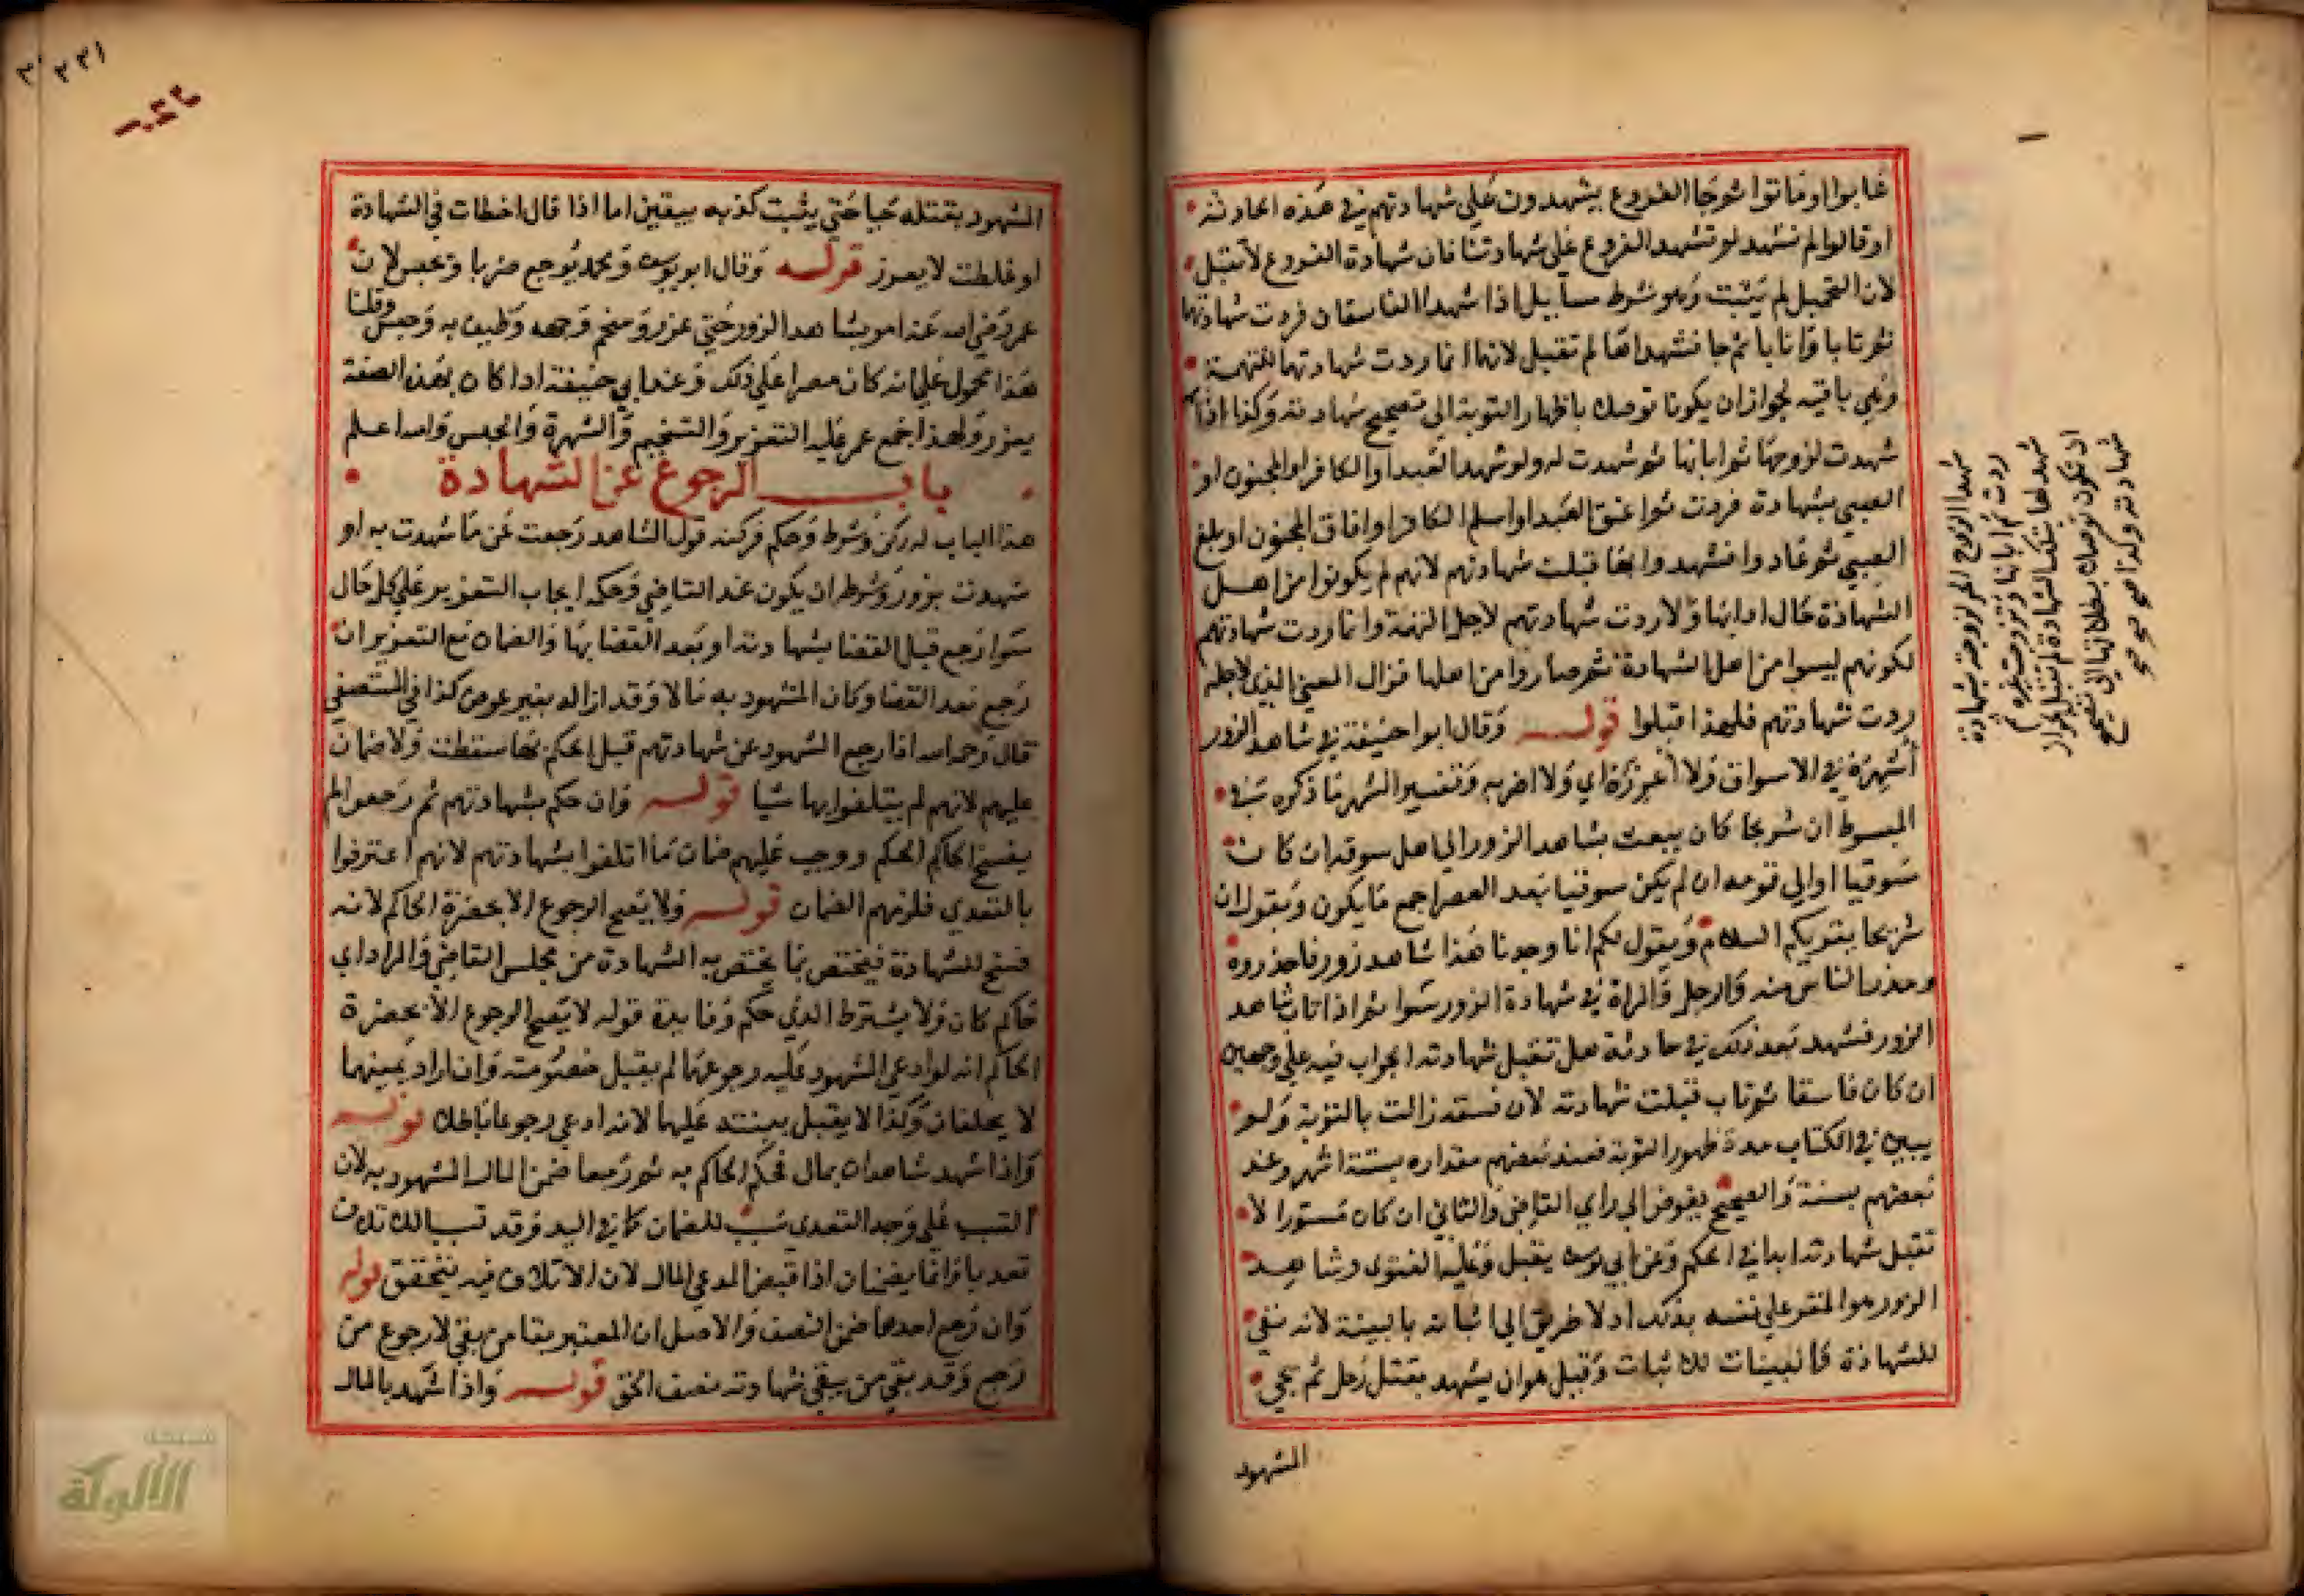 غابوا او ماتوا ثم جا الفروع يشهدون علي شهادتهم في هذه الحادثة
او قالوا لم نشهد لو تشهد الفروع علي شهادتنا فان شهادة الفروع لا تقبل
لان التحميل لم يثبت وهو شرط مسايل اذا شهد الفاسقان فردت شهادتهما
ثم تابا وانابا ثم جا فشهدا لم تقبل لانها انما ردت شهادتهما للتهمة
وهي باقية لجواز ان يكونا توصلا باظهار التوبة الي تصحيح شهادته وكذا اذا
شهدت لزوجها ثم ابانها ثم شهدت له ولو شهد العبد او الكافر او المجنون او
الصبي بشهادة فردت ثم اعتق العبد او اسلم الكافر او افاق المجنون او بلغ
الصبي ثم عادوا فشهدوا بها قبلت شهادتهم لانهم لم يكونوا من اهل
الشهادة حال ادايها ولا ردت شهادتهم لاجل التهمة وانما ردت شهادتهم
لكونهم ليسوا من اهل الشهادة ثم صاروا من اهلها فزال المعني الذي لاجله
ردت شهادتهم فلهذا قبلوا قوله وقال ابوا حنيفة في شاهد الزور
أشهره في الاسواق ولا أعزره اي ولا اضربه وتفسير الشهر ما ذكره في
المبسوط ان شريحا كان يبعث بشاهد الزور الي اهل سوقه ان كان
سوقيا او الي قومه ان لم يكن سوقيا بعد العصر اجمع ما يكون ويقول ان
شريحا يقريكم السلام ويقول لكم انا وجدنا هذا شاهد زور فاحذروه
وحذروا الناس منه والرجل والمراة في شهادة الزور سوا ثم اذا تاب شاهد
الزور فشهد بعد ذلك في حادثة هل تقبل شهادته الجواب فيه علي وجهين
ان كان فاسقا ثم تاب قبلت شهادته لان فسقه زالت بالتوبة ولم
يبين في الكتاب مدة ظهور التوبة فعند بعضهم مقداره بستة اشهر وعند
بعضهم بسنة والصحيح يفوض الي راي القاضي والثاني ان كان مستورا لا
تقبل شهادته ابدا في الحكم وعن ابي يوسف يقبل وعليه الفتوي وشاهد
الزور هو المقر علي نفسه بذلك اذ لا طريق الي اثباته بالبينة لانه نفي
للشهادة والبينات للاثبات وقيل هو ان يشهد بقتل رجل ثم يجي
المشهود
شهد الزوج الحر لزوجته بشهادة
ردت ثم ابانها وتزوجت بغيره ثم
شهد لها بتلك الشهادة لم تقبل لجواز
ان تكون توصل بطلاقها الي تصحيح
شهادته وكذا
المشهود بقتله حيا حتي يثبت كذبه بيقين اما اذا قال اخطات في الشهادة
او غلطت لا يعزر قوله وقال ابو يوسف ومحمد يوجع ضربا ويحبس لان
عمر رضي الله عنه امر بشاهد الزور حتي عزر وسخم وجهه وطيف به وحبس وقلنا
هذا محمول علي انه كان مصرا علي ذلك وعند ابي حنيفة اذا كان بهذه الصفة
يعزر ولهذا جمع عمر عليه التعزير والتسخيم والشهرة والحبس والله اعلم
باب الرجوع عن الشهادة
هذا الباب له ركن وشرط وحكم فركنه قول الشاهد رجعت عن ما شهدت به او
شهدت بزور وشرطه ان يكون عند القاضي وحكمه ايجاب التعزير علي كل حال
سوا رجع قبل القضا بشهادته او بعد القضا بها والضمان مع التعزير ان
رجع بعد القضا وكان المشهود به مالا وقد ازاله بغير عوض كذا في المستصفي
قال رحمه الله اذا رجع الشهود عن شهادتهم قبل الحكم بها سقطت ولا ضمان
عليهم لانهم لم يتلفوا بها شيا قوله وان حكم بشهادتهم ثم رجعوا لم
يفسخ الحاكم الحكم ووجب عليهم ضمان ما اتلفوا بشهادتهم لانهم اعترفوا
بالتعدي فلزمهم الضمان قوله ولا يصح الرجوع الا بحضرة الحاكم لانه
فسخ للشهادة فيختص بما يختص به الشهادة من مجلس القاضي والمراد اي
حاكم كان ولا يشترط الذي حكم وفايدة قوله لا يصح الرجوع الا بحضرة
الحاكم انه لو ادعي المشهود عليه رجوعها لم يقبل خصومته وان اراد يمينهما
لا يحلفان وكذا لا يقبل بينته عليهما لانه ادعي رجوعا باطلا قوله
واذا شهد شاهدان بمال فحكم الحاكم به ثم رجعا ضمنا المال المشهود به لان
التسبب علي وجه التعدي سبب للضمان كما في البير وقد تسببا للاتلاف
تعديا وانما يضمنان اذا قبض المدعي المال لان الاتلاف فيه يتحقق قوله
وان رجع احدهما ضمن النصف والاصل ان المعتبر بقا من بقي لا رجوع من
رجع وقد بقي من يبقي شهادته نصف الحق قوله واذا شهد بالمال
شبكة
الألوكة